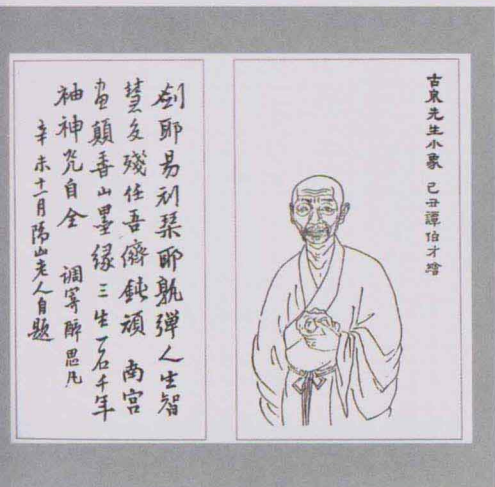 古泉先生小象 己丑譚伯才繪
劍耶易刓琹耶孰彈人生智
慧多殘任吾儕鈍頑 南宮
畫顛香山墨緣三生一石千年
袖神完自全 調寄醉思凡
辛未十一月陽山老人自題